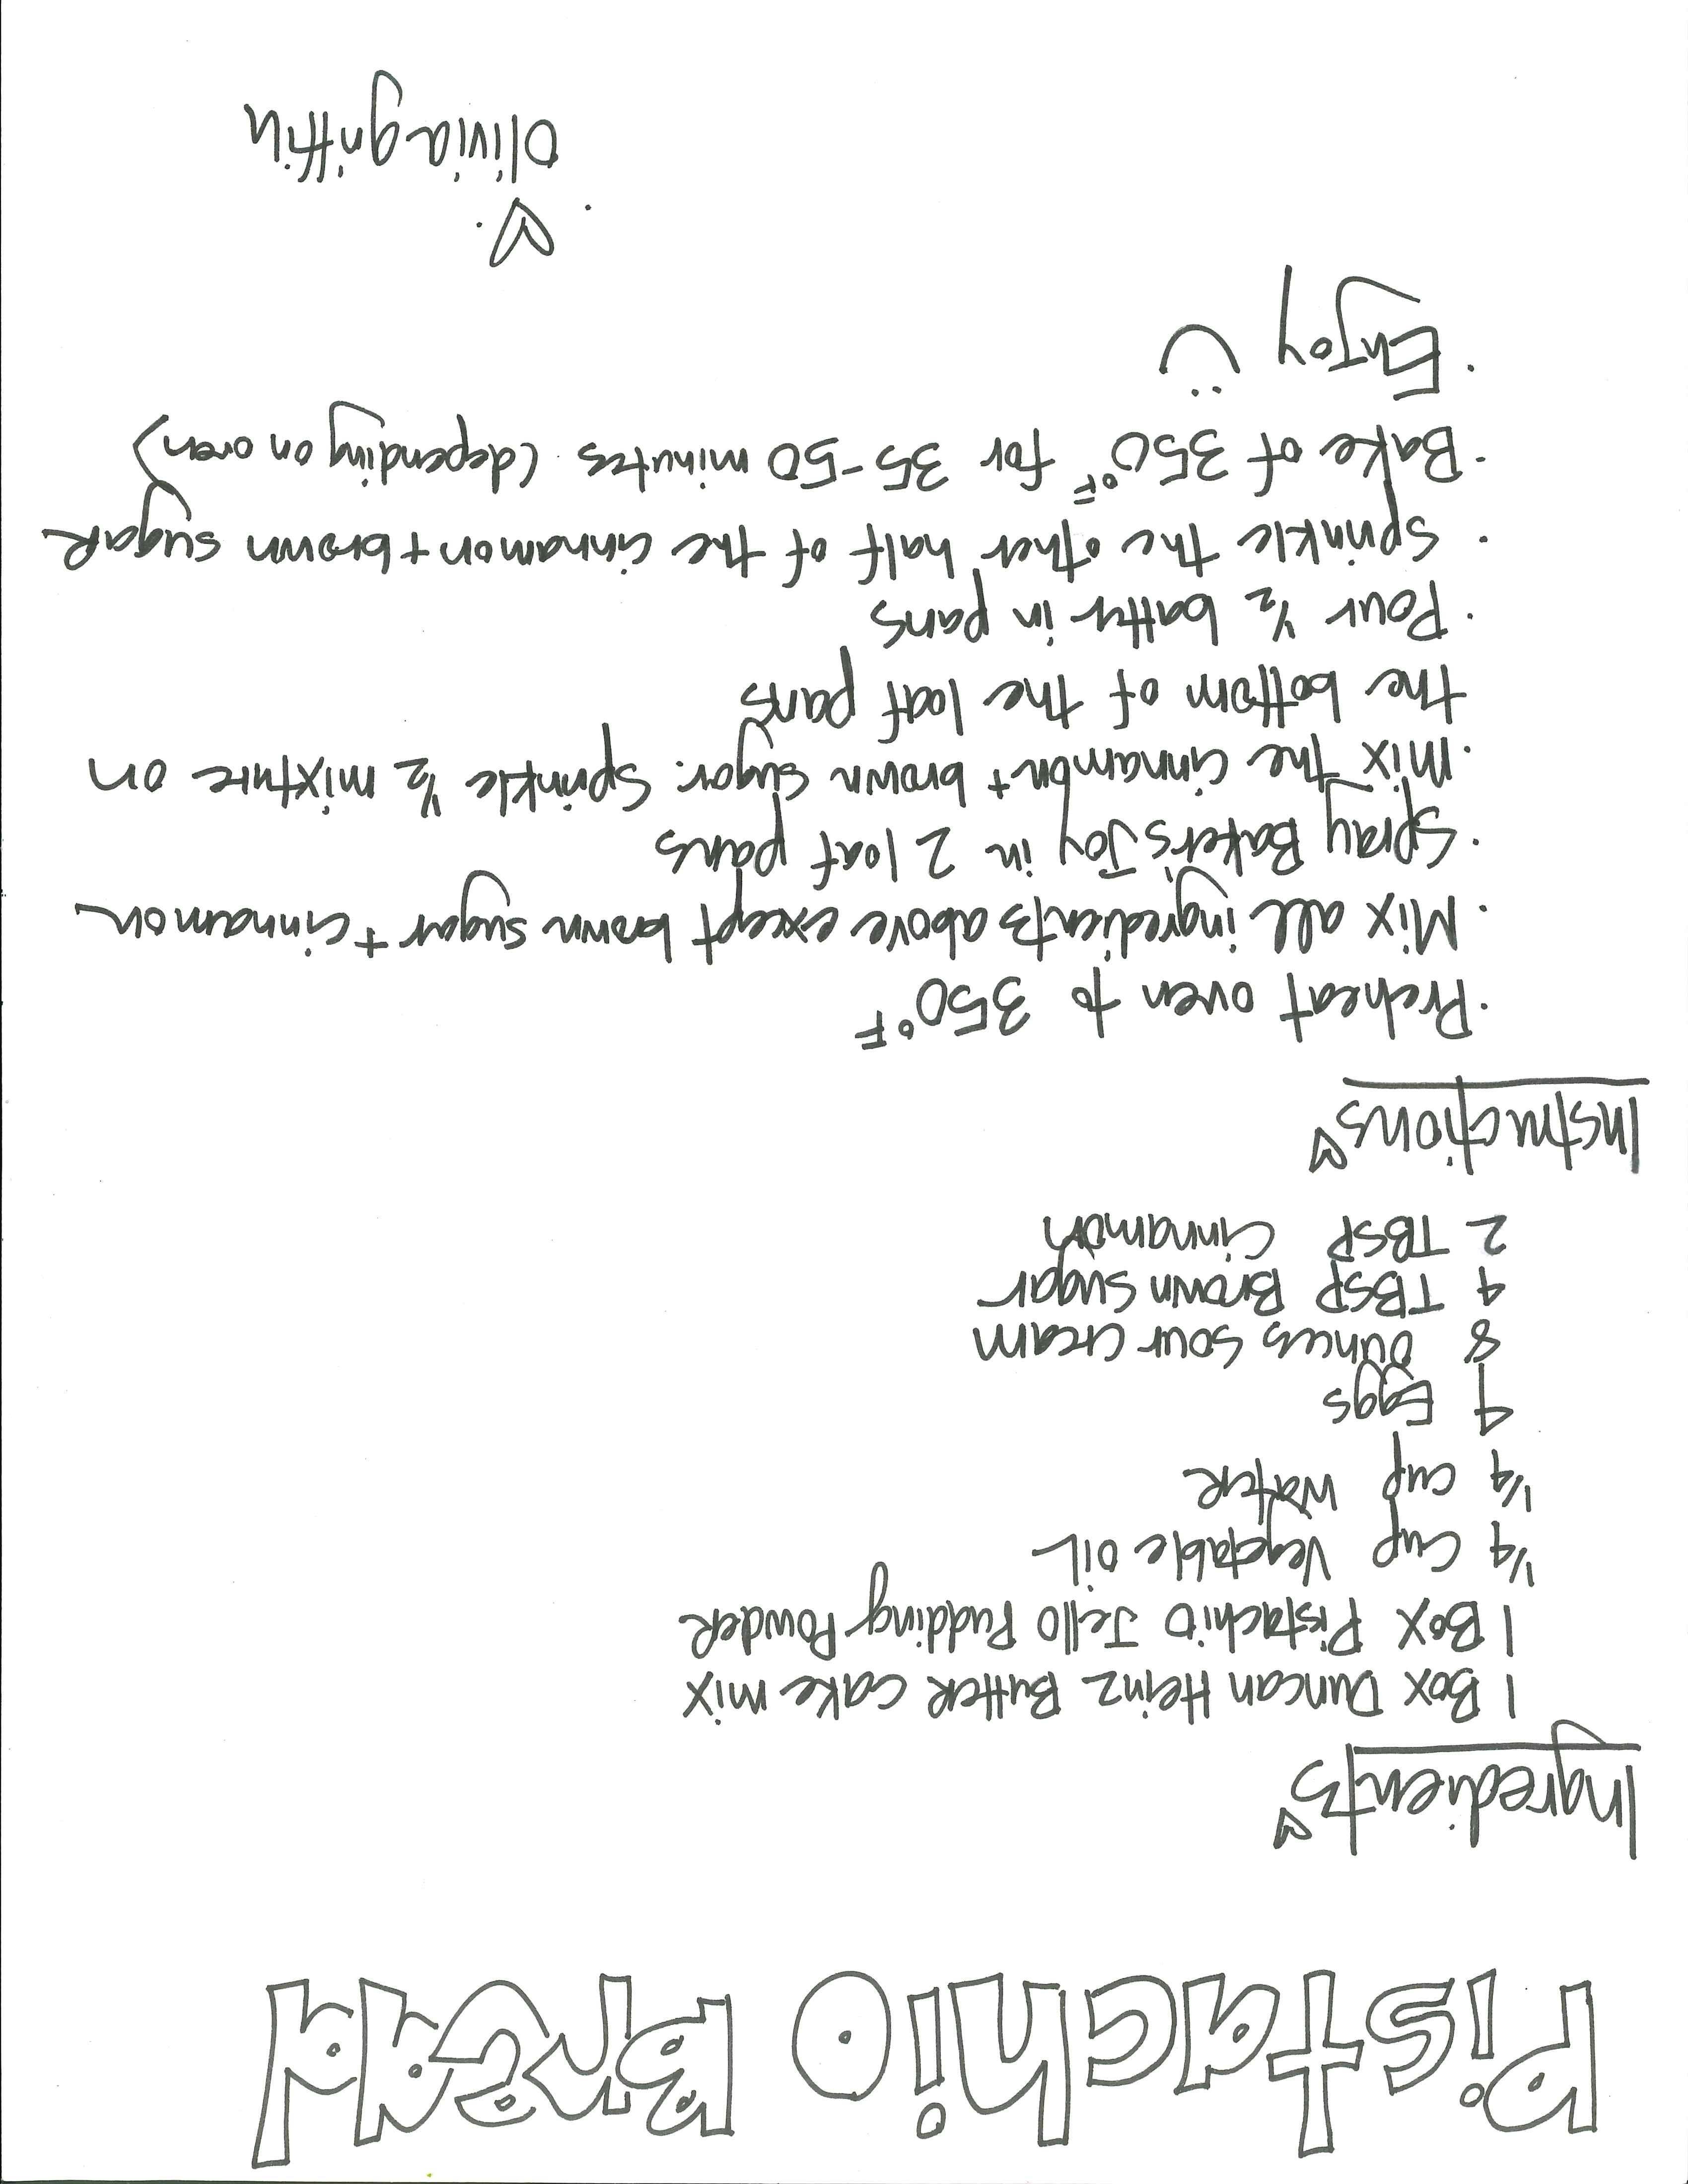 Pistachio Bread
Ingredients
1 Box Duncan Heinz Butter cake mix
1 Box Pistachio Jello Pudding Powder
1/4 cup Vegetable oil
1/4 cup Water
4 Eggs
8 ounces sour cream
4 TBSP Brown sugar
2 TBSP Cinnamon
Instructions
· Preheat oven to 350°F
· Mix all ingredients above except brown sugar + cinnamon
· Spray Baker's Joy in 2 loaf pans
· Mix the cinnamon + brown sugar. Sprinkle 1/2 mixture on
the bottom of the loaf pans
· Pour 1/2 batter in pans
· Sprinkle the other half of the cinnamon + brown sugar
· Bake of 350°F for 35-50 minutes (depending on oven)
· Enjoy :)
♡
olivia griffin